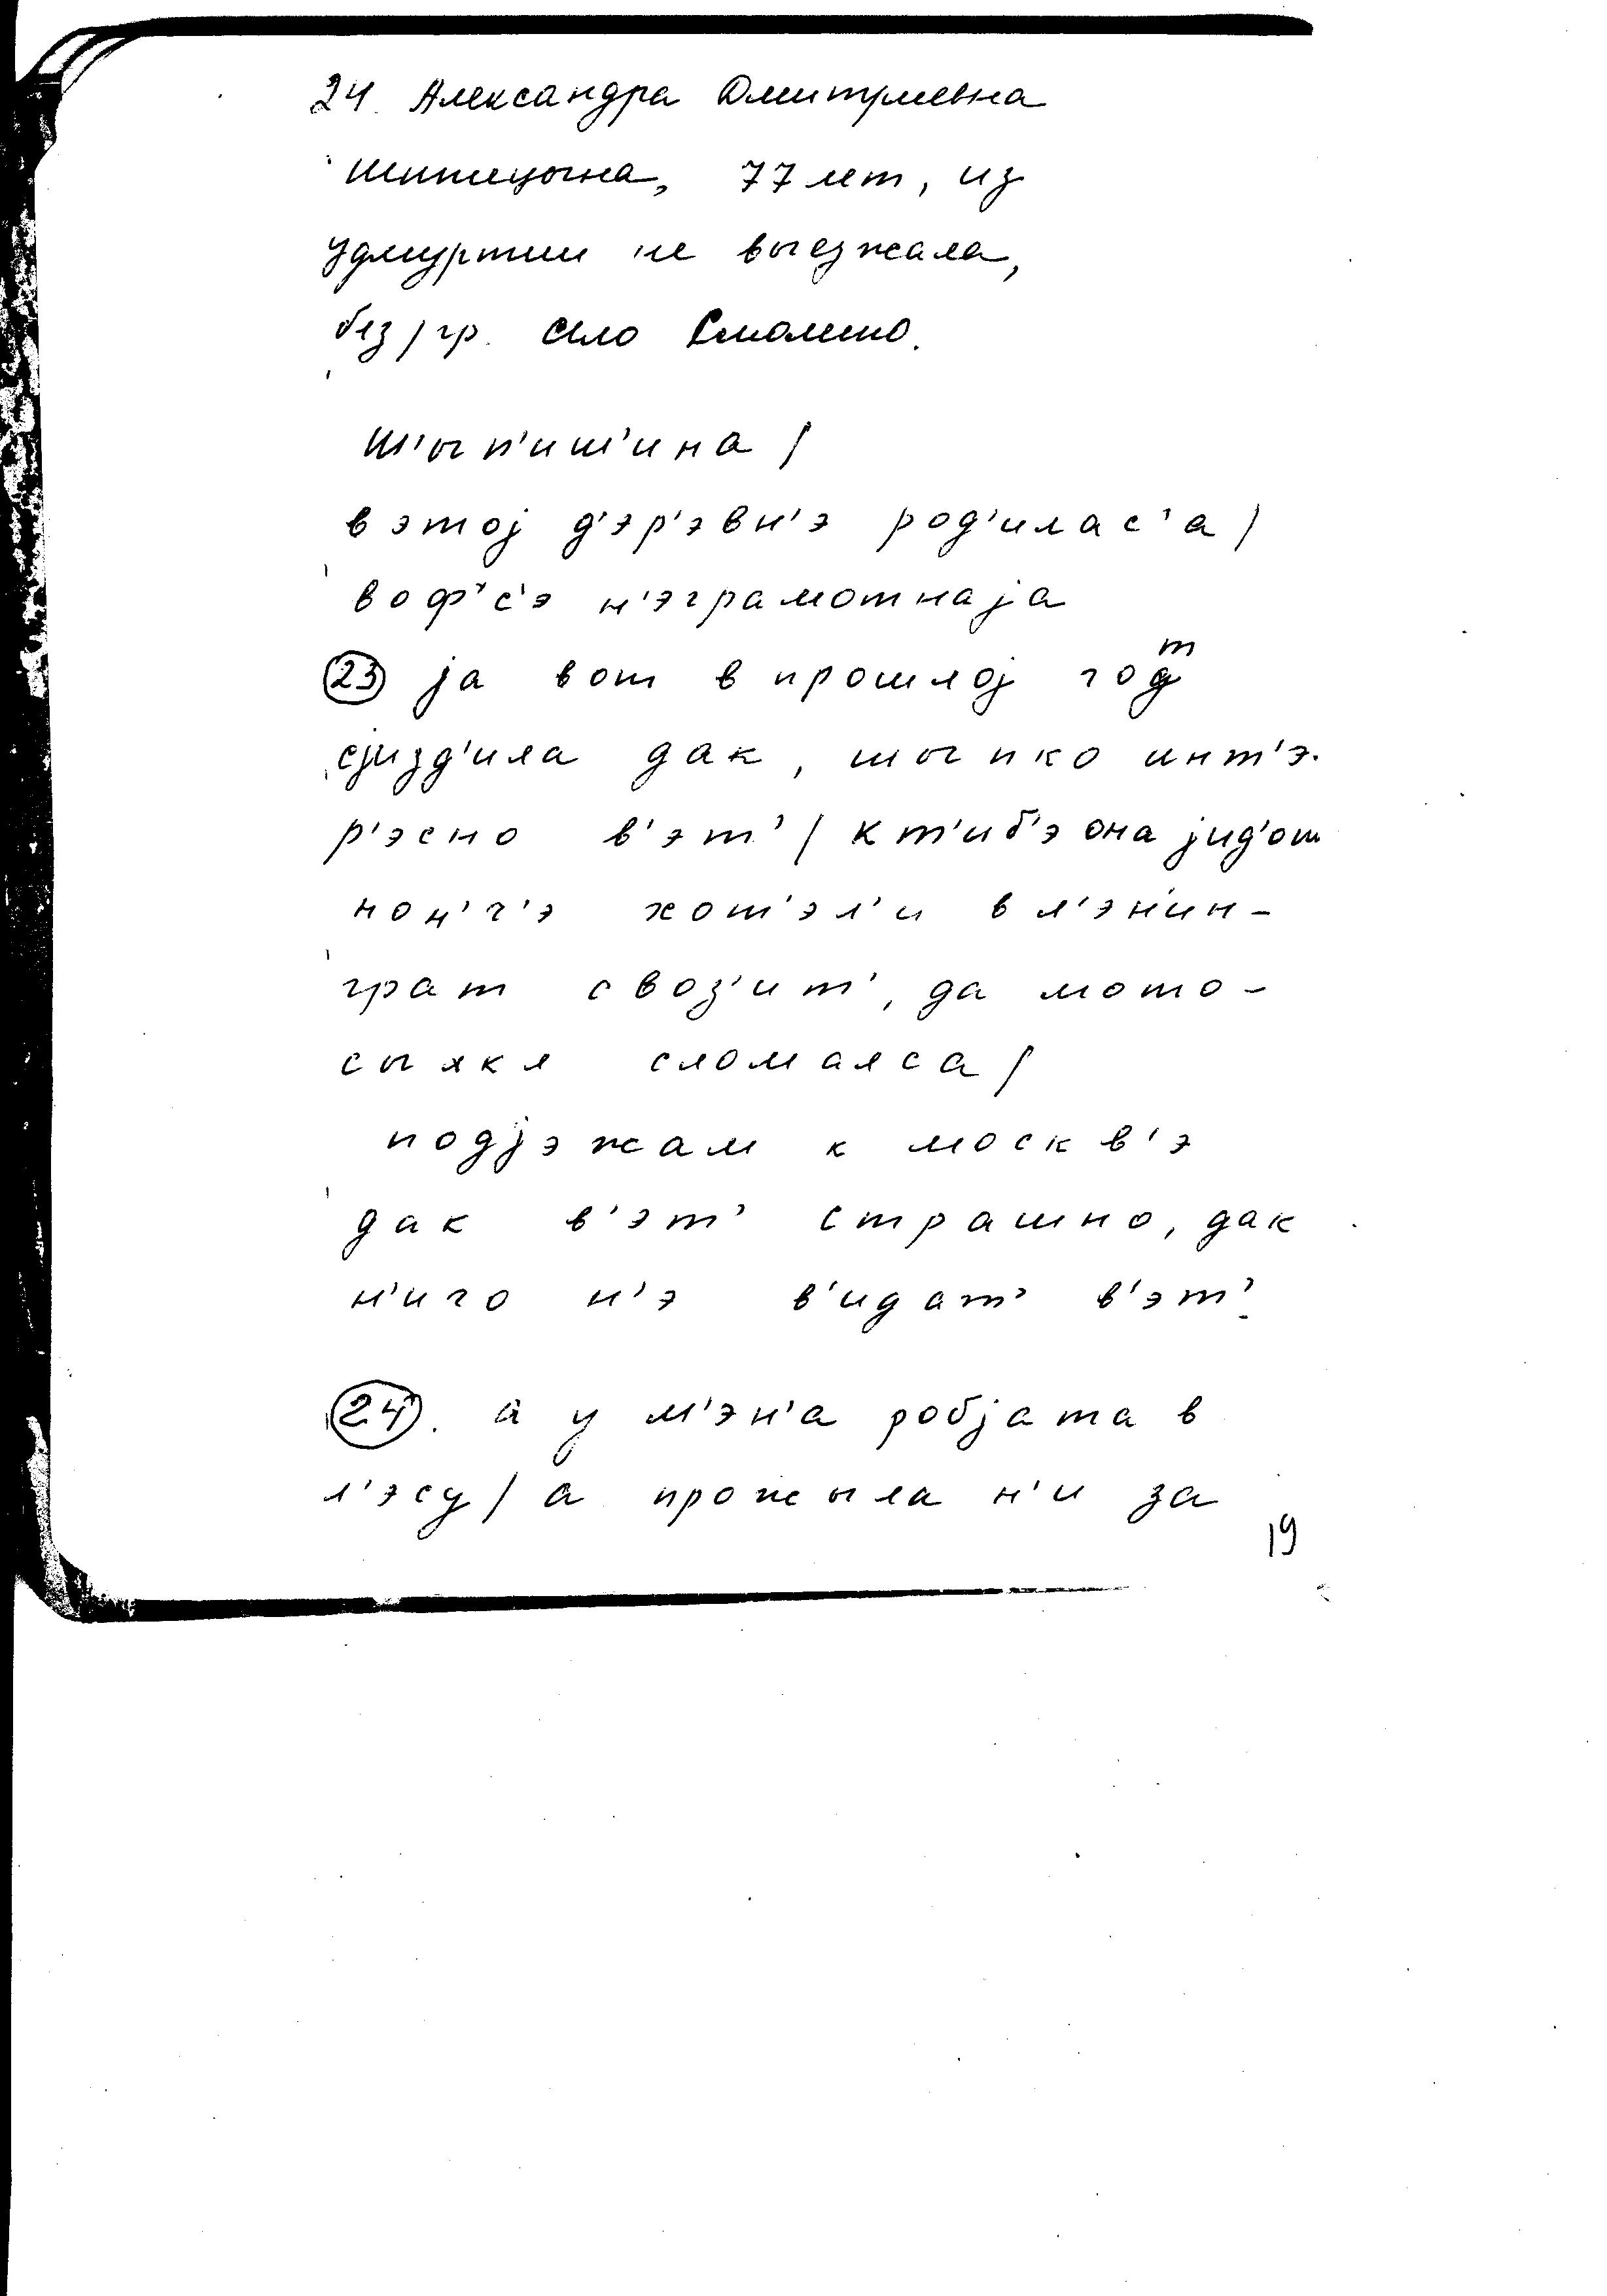 24. Александра Дмитриевна
Шипицына, 77 лет, из
Удмуртии не выезжала,
без/гр. село Смолино.
ш'ып'иш'ина /
в этој д'эр'эвн'э род'илас'а /
воф'с'э н'эграмотнаја
23 ја вот в прошлој год т
сјизд'ила дак, шыпко инт'э-
р'эсно в'эт' / к т'иб'э она јид'от
нон'ч'э хот'эл'и в л'эн'ин-
грат своз'ит', да мото-
сыкл сломалса /
подјэжам к москв'э
дак в'эт' страшно, дак
н'иго н'э в'идат' в'эт'.
24. а у м'эн'а робјата в
л'эсу / а прожыла н'и за
19